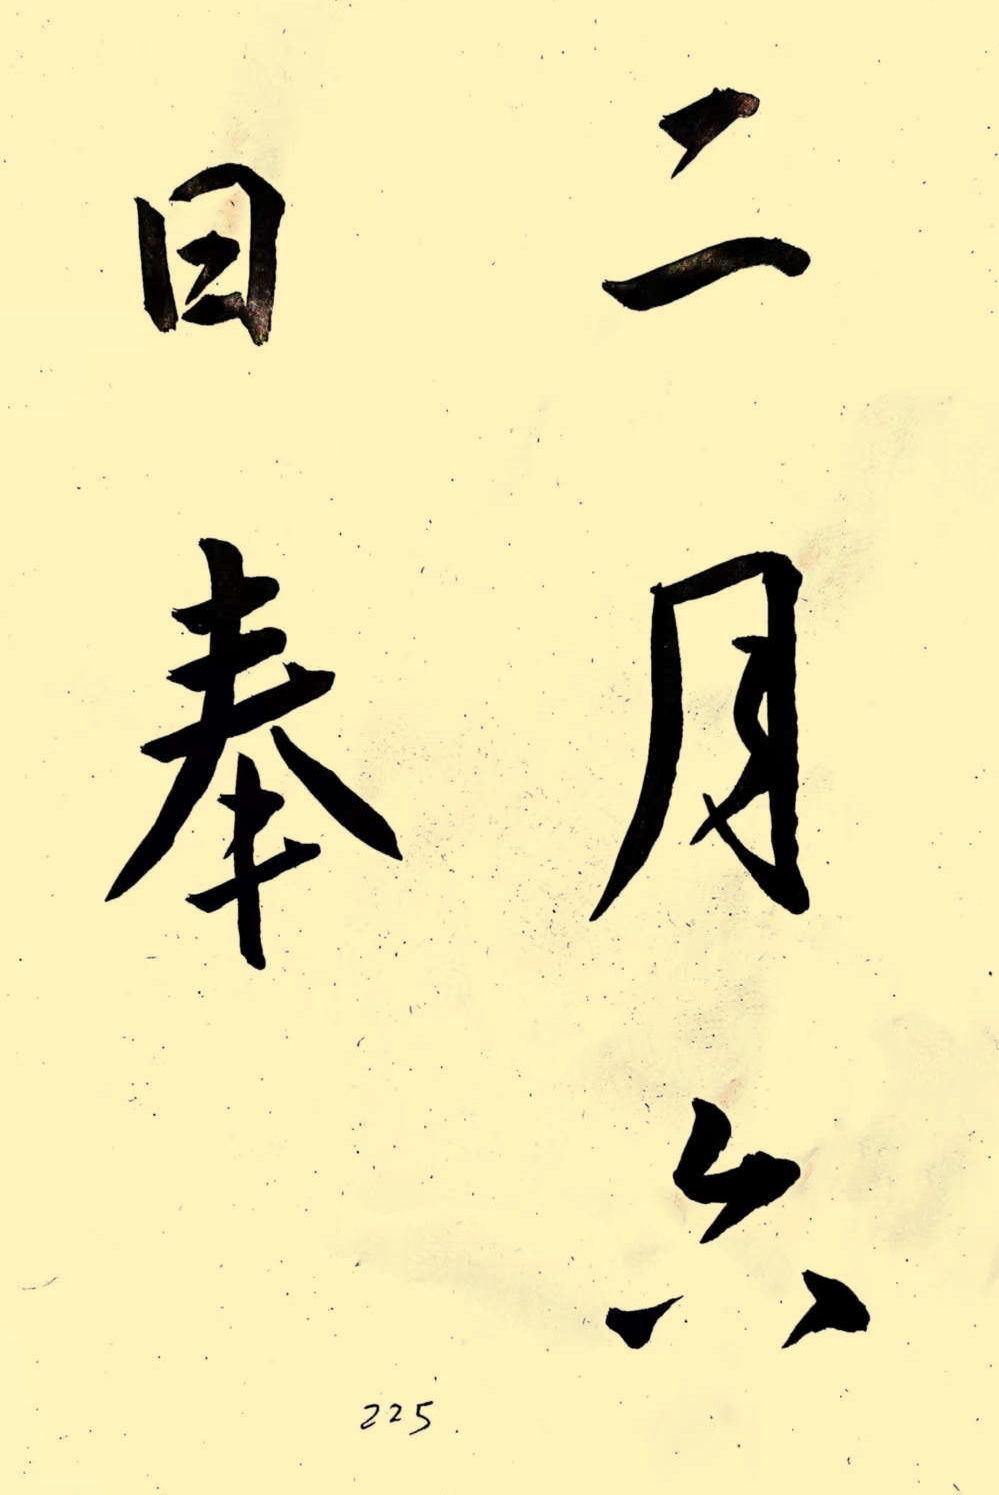 二月六
日奉
225